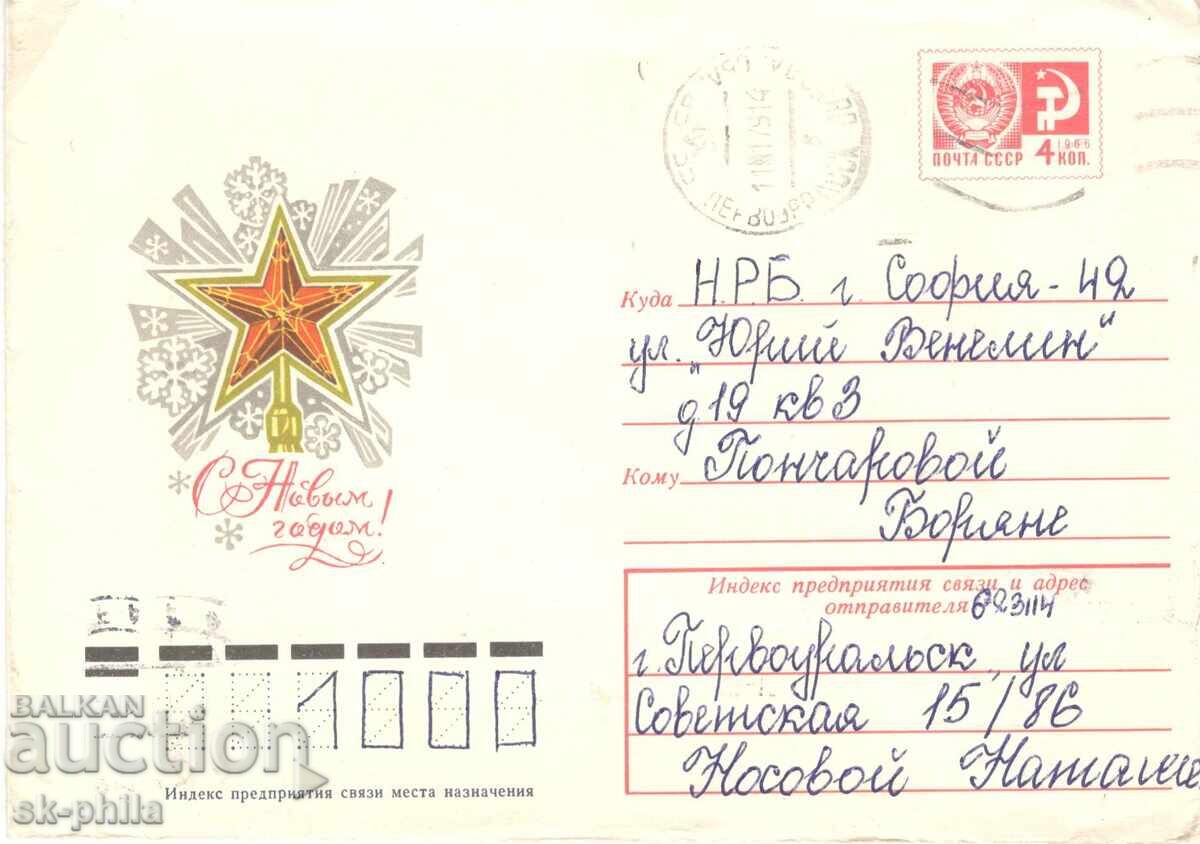 ПОЧТА СССР 4 КОП.
1966
ПЕРВОУРАЛЬСК
Куда Н.Р.Б. г. София - 42
ул. „Юрий Венелин"
д 19 кв 3
Кому Пончаровой
Боряне
Индекс предприятия связи и адрес
отправителя 623114
г. Первоуральск, ул
Советская 15/86
Носовой Наташи
С Новым
годом!
1000
Индекс предприятия связи места назначения
BALKAN
auction
sk-phila